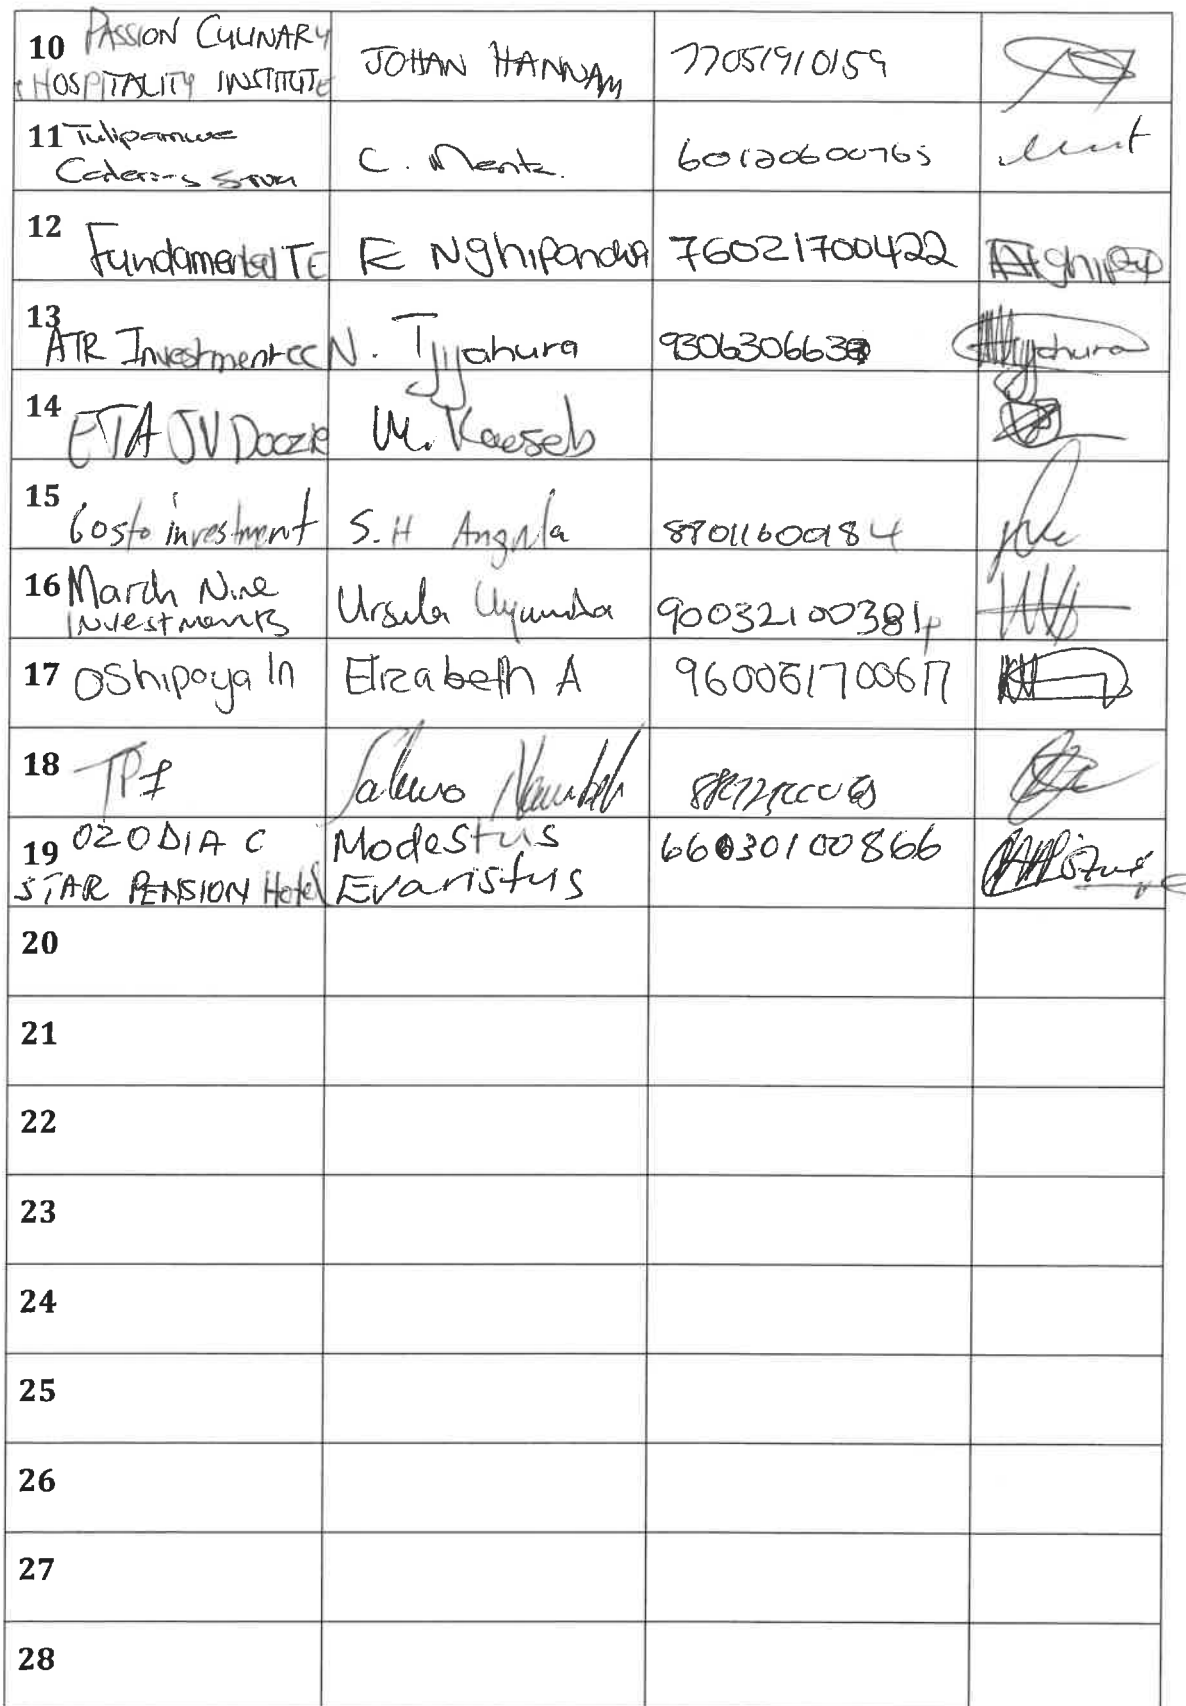 10 PASSION CULINARY
HOSPITALITY INSTITUTE JOHAN HANNAM 77051910159
11 Tulipamwe
Catering C. Mentz. 60120600765
12 Fundamental TE E Nghipandwa 76021700422
13 ATR Investment cc N. Tjijahura 9306306630
14 ETA JV Doozie M. Kaeseb
15 Costo investment S.H Angula 88011600184
16 March Nine
Investments Ursula Uyumba 90032100381
17 Oshipoya In Elizabeth A 96006170067
18 TPI
19 OZODIA C Modestus 66030100866
STAR PENSION Hotel Evaristus
20
21
22
23
24
25
26
27
28